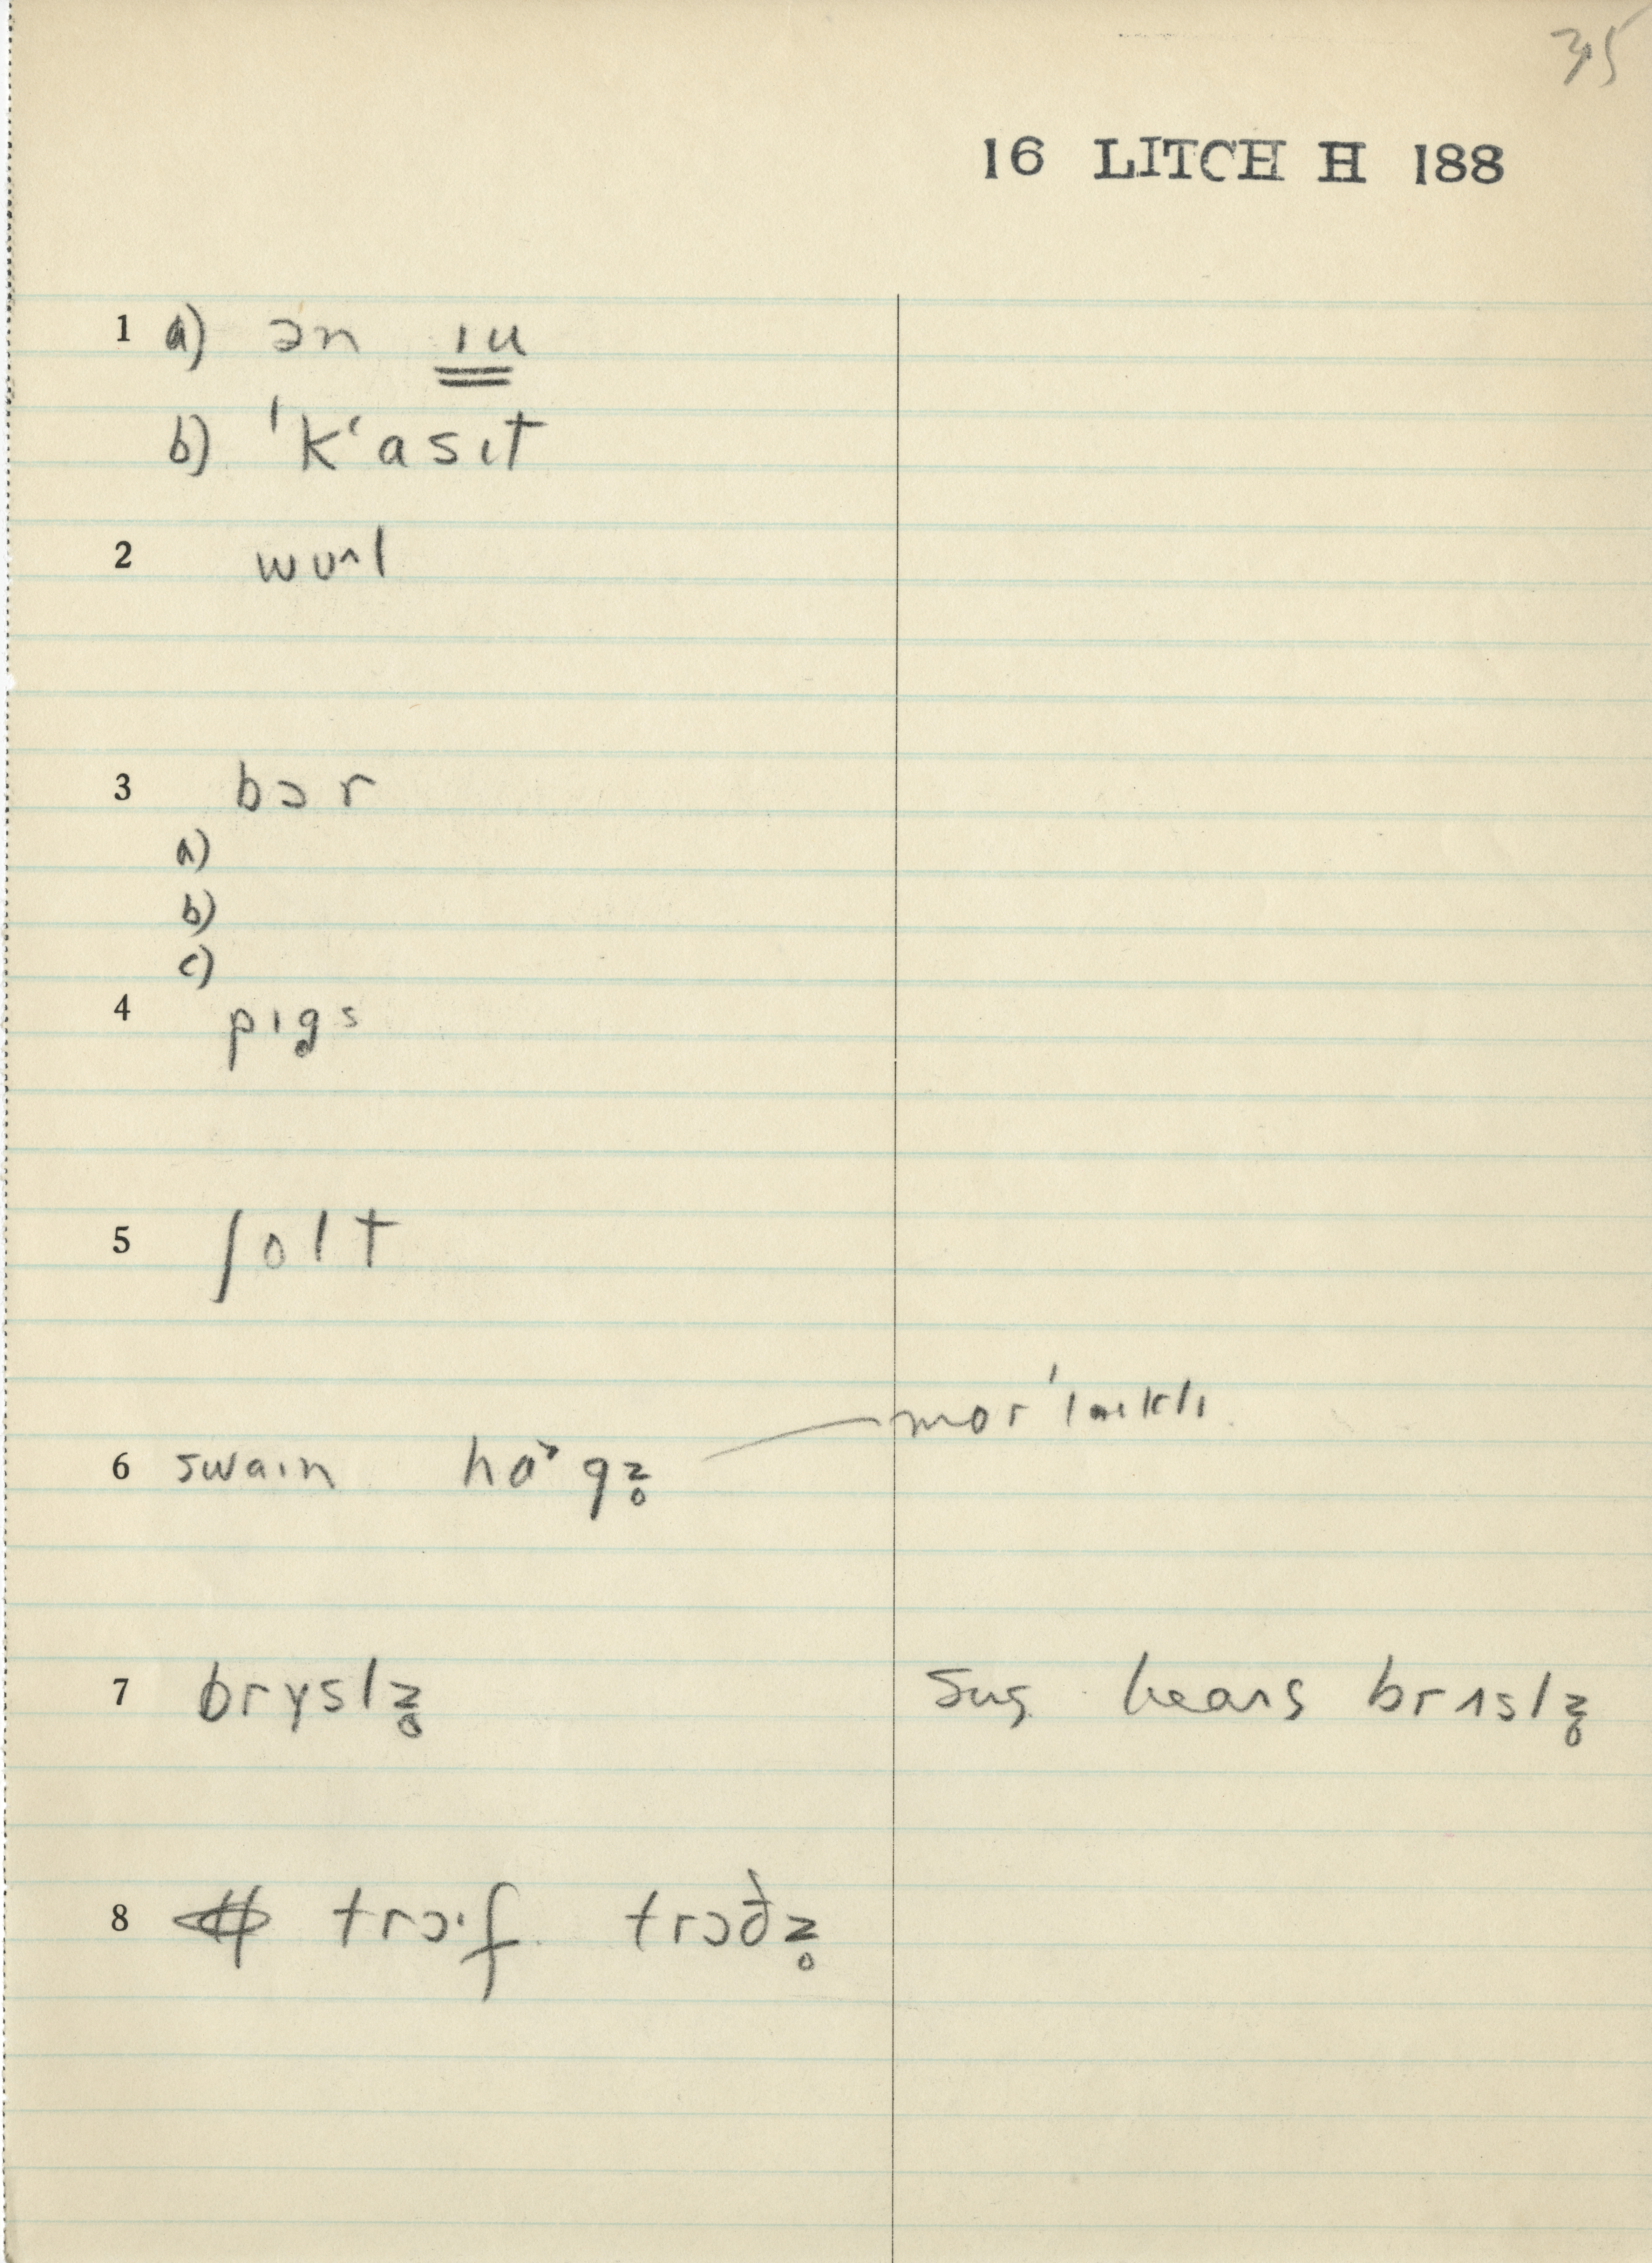 35
16 LITCH H 188
1 a) ən ɪu
b) ˈkʻasɪt
2 wu^l
3 bɔr
a)
b)
c)
4 pɪgs
5 ʃolt
6 swaɪn hɑ˃gz̥ mor ˈlaɪklɪ
7 bryslz̥ Sug hears brɪslz̥
8 trɔ·f trɔðz̥